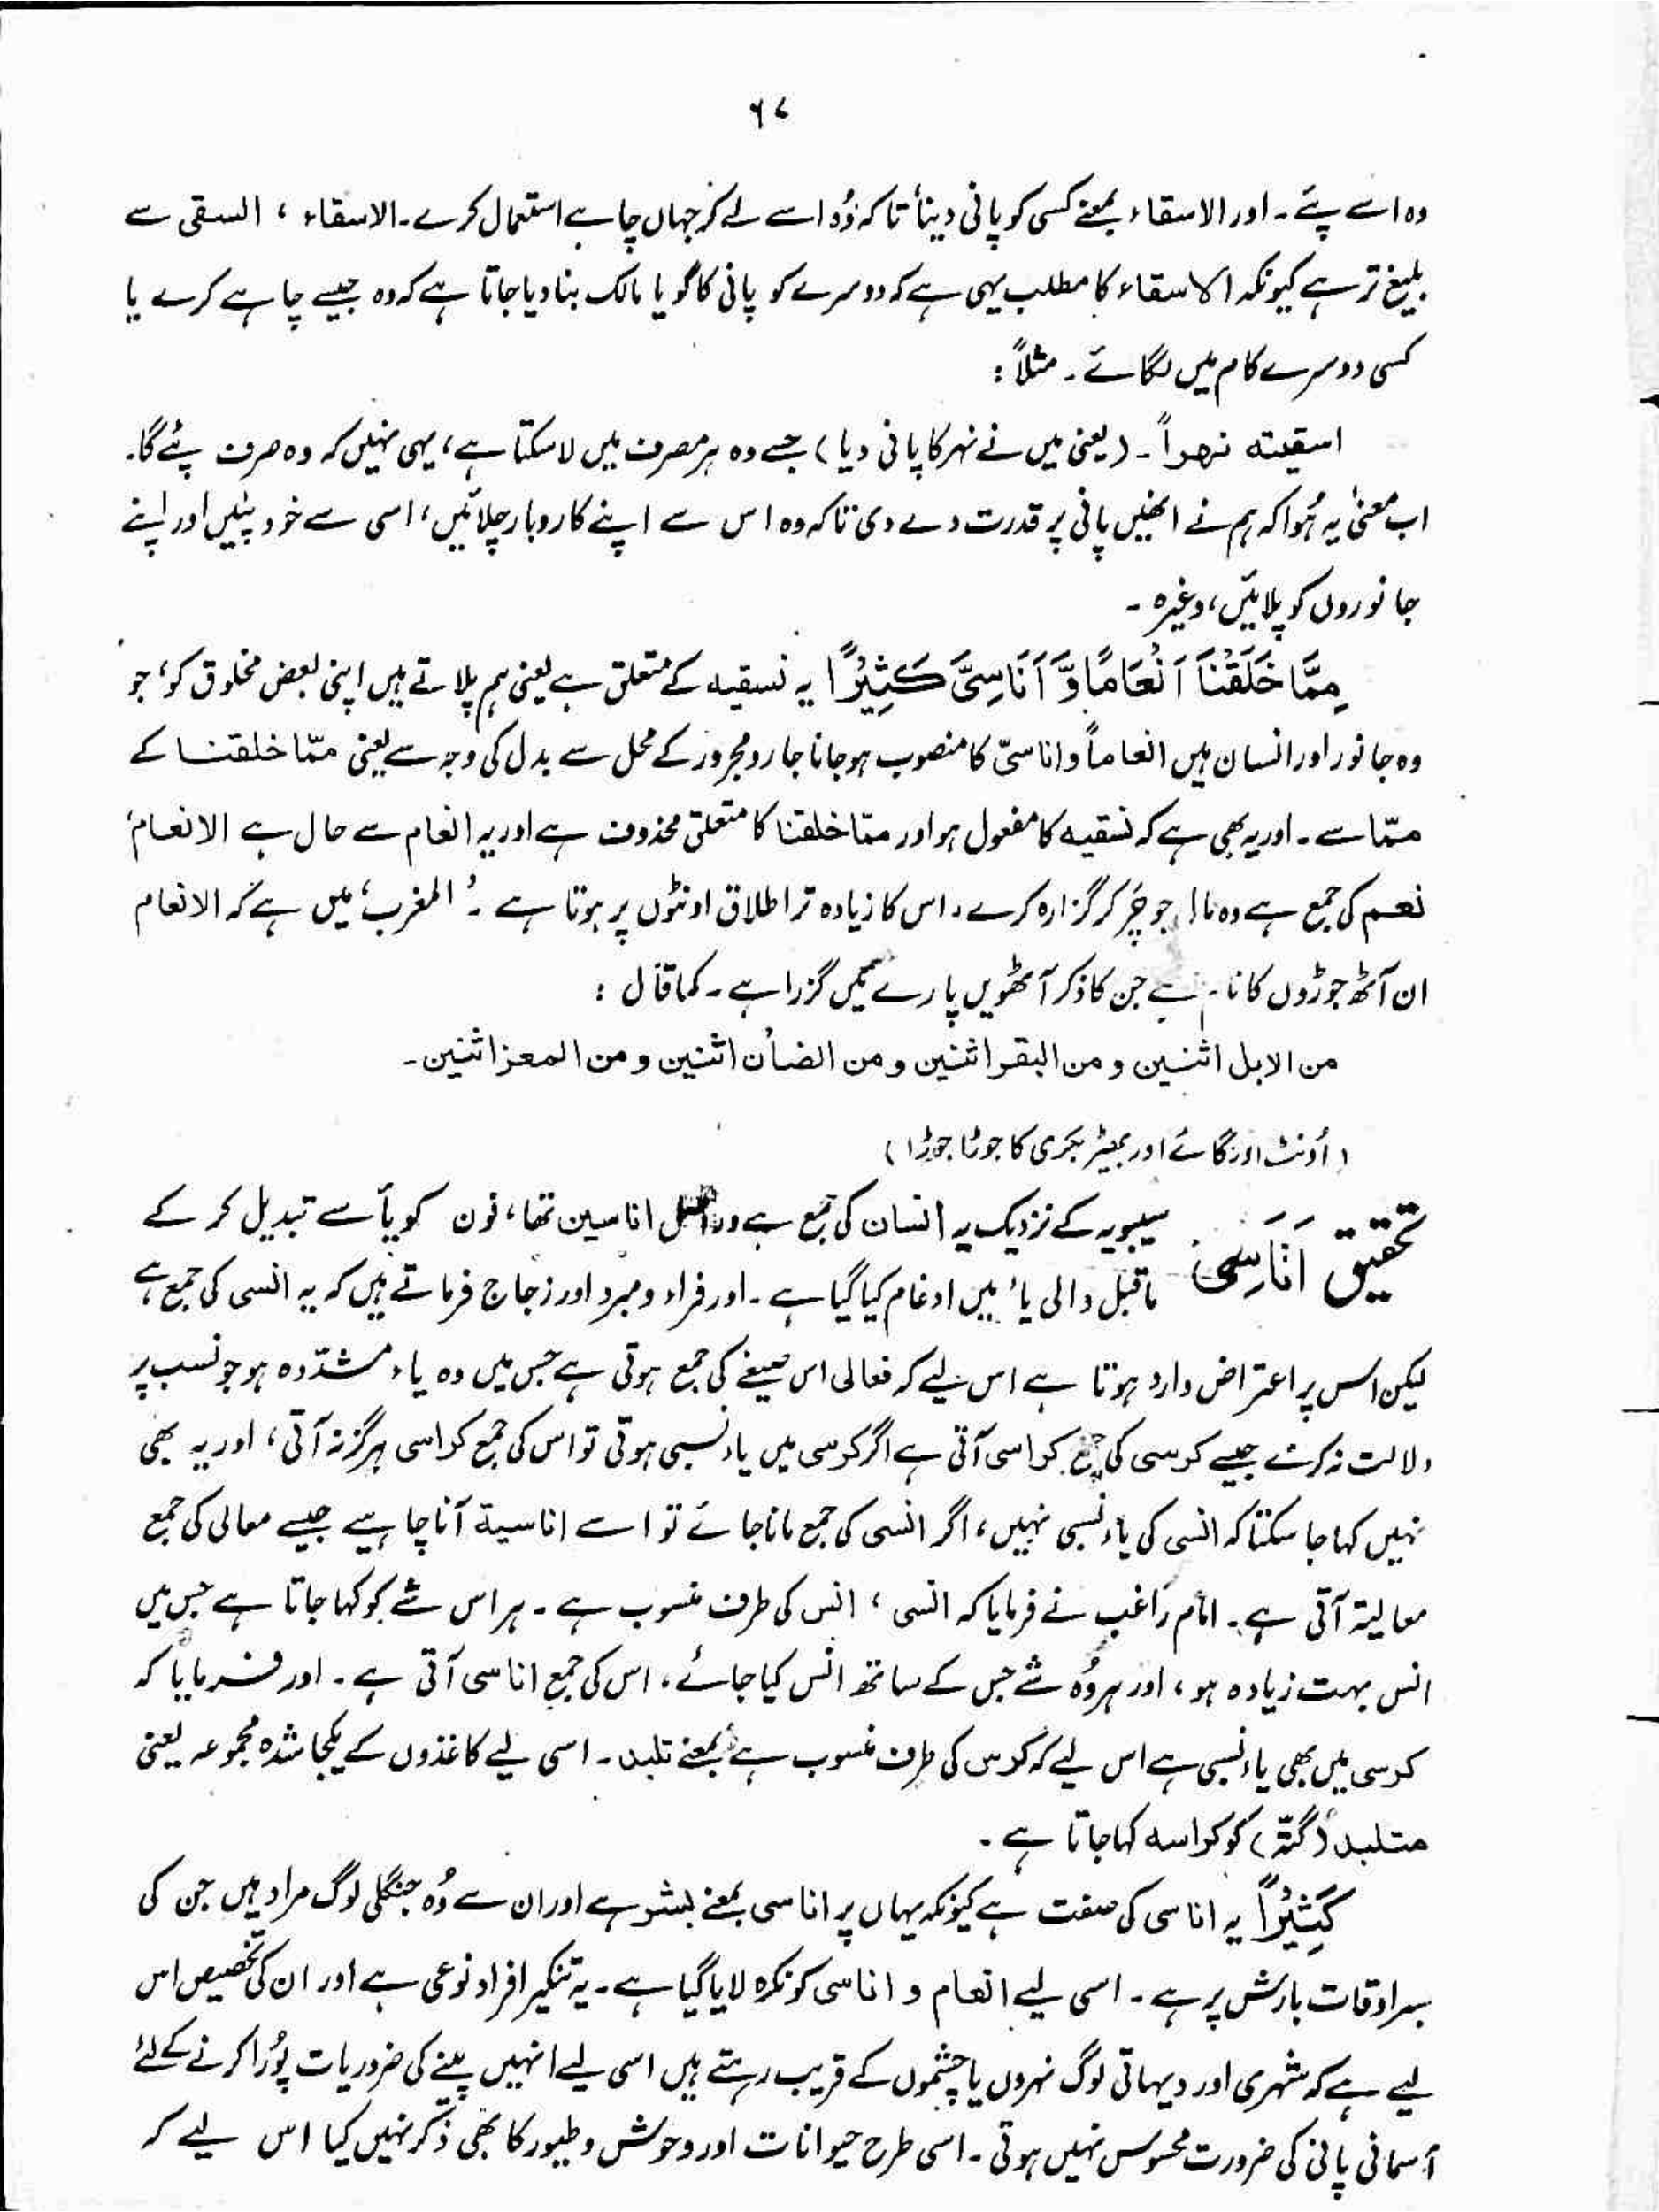 ۶۷
وہ اسے پئے ۔ اور الاسقاء بمعنے کسی کو پانی دینا تاکہ وُہ اسے لے کر جہاں چاہے استعمال کرے ۔ الاسقاء ، السقی سے
بلیغ تر ہے کیونکہ الاسقاء کا مطلب یہی ہے کہ دوسرے کو پانی کا گویا مالک بنا دیا جاتا ہے کہ وہ جیسے چاہے کرے یا
کسی دوسرے کام میں لگائے ۔ مثلاً :
اسقیته نهراً ۔ (یعنی میں نے نہر کا پانی دیا) جسے وہ ہر مصرف میں لا سکتا ہے، یہی نہیں کہ وہ صرف پئے گا۔
اب معنیٰ یہ ہُوا کہ ہم نے انھیں پانی پر قدرت دے دی تاکہ وہ اس سے اپنے کاروبار چلائیں، اسی سے خود پئیں اور اپنے
جانوروں کو پلائیں، وغیرہ ۔
مِمَّا خَلَقْنَا اَنْعَامًا وَّ اَنَاسِیَّ کَثِیْرًا یہ نسقیه کے متعلق ہے یعنی ہم پلاتے ہیں اپنی بعض مخلوق کو، جو
وہ جانور اور انسان ہیں انعاماً و اناسیّ کا منصوب ہو جانا جار و مجرور کے محل سے بدل کی وجہ سے یعنی ممّا خلقنا کے
ممّا سے ۔ اور یہ بھی ہے کہ نسقیه کا مفعول ہو اور ممّا خلقنا کا متعلق محذوف ہے اور یہ انعام سے حال ہے الانعام
نعم کی جمع ہے وہ مال جو چَر کر گزارہ کرے ، اس کا زیادہ تر اطلاق اونٹوں پر ہوتا ہے ۔ 'المغرب' میں ہے کہ الانعام
ان آٹھ جوڑوں کا نام ہے جن کا ذکر آٹھویں پارے میں گزرا ہے ۔ کما قال :
من الابل اثنین و من البقر اثنین و من الضأن اثنین و من المعز اثنین ۔
(اُونٹ اور گائے اور بھیڑ بکری کا جوڑا جوڑا)
تحقیق اَنَاسِی
سیبویہ کے نزدیک یہ انسان کی جمع ہے دراصل اناسین تھا، نون کو یأ سے تبدیل کر کے
ماقبل والی یاء میں ادغام کیا گیا ہے ۔ اور فراء و مبرد اور زجاج فرماتے ہیں کہ یہ انسی کی جمع ہے
لیکن اس پر اعتراض وارد ہوتا ہے اس لیے کہ فعالی اس صیغے کی جمع ہوتی ہے جس میں وہ یاء مشدّدہ ہو جو نسب پر
دلالت نہ کرے جیسے کرسی کی جمع کراسی آتی ہے اگر کرسی میں یاء نسبی ہوتی تو اس کی جمع کراسی ہرگز نہ آتی، اور یہ بھی
نہیں کہا جا سکتا کہ انسی کی یاء نسبی نہیں، اگر انسی کی جمع مانا جائے تو اسے اناسیة آنا چاہیے جیسے معالی کی جمع
معالیة آتی ہے ۔ امام راغب نے فرمایا کہ انسی ، انس کی طرف منسوب ہے ۔ ہر اس شے کو کہا جاتا ہے جس میں
انس بہت زیادہ ہو ، اور ہر وُہ شے جس کے ساتھ انس کیا جائے، اس کی جمع اناسی آتی ہے ۔ اور فرمایا کہ
کرسی میں بھی یاء نسبی ہے اس لیے کہ کرس کی طرف منسوب ہے بمعنے تلبد ۔ اسی لیے کاغذوں کے یکجا شدہ مجموعہ یعنی
متلبد (گتّہ) کو کراسه کہا جاتا ہے ۔
کَثِیْرًا یہ اناسی کی صفت ہے کیونکہ یہاں پر اناسی بمعنے بشر ہے اور ان سے وُہ جنگلی لوگ مراد ہیں جن کی
بسر اوقات بارش پر ہے ۔ اسی لیے انعام و اناسی کو نکرہ لایا گیا ہے ۔ یہ تنکیر افراد نوعی ہے اور ان کی تخصیص اس
لیے ہے کہ شہری اور دیہاتی لوگ نہروں یا چشموں کے قریب رہتے ہیں اسی لیے انہیں پینے کی ضروریات پُورا کرنے کے لئے
آسمانی پانی کی ضرورت محسوس نہیں ہوتی ۔ اسی طرح حیوانات اور وحوش و طیور کا بھی ذکر نہیں کیا اس لیے کہ